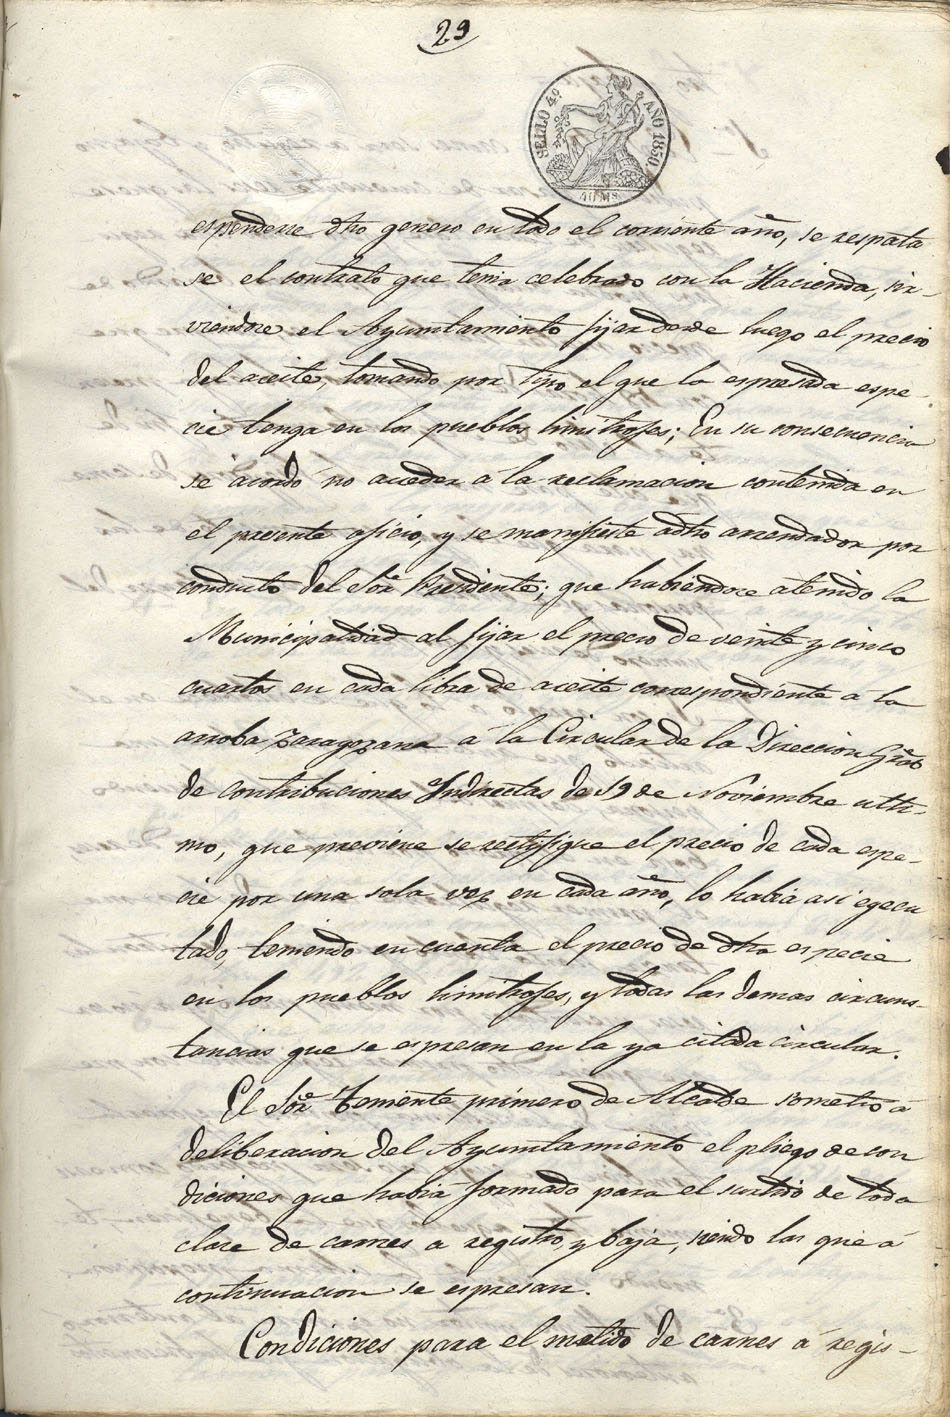 29
SELLO 4º AÑO 1850.
40 MS
espenderse dho genero en todo el corriente año, se respeta
se el contrato que tenia celebrado con la Hacienda, sir-
viendose el Ayuntamiento fijar desde luego el precio
del aceite, tomando por tipo el que la espresada espe-
cie tenga en los pueblos limitrofes; En su consecuencia
se acordó no acceder á la reclamacion contenida en
el presente oficio, y se manifieste adho arrendador por
conducto del Sor Presidente; que habiendose atenido la
Municipalidad al fijar el precio de veinte y cinco
cuartos en cada libra de aceite correspondiente á la
arroba Zaragozana á la Circular de la Direccion Gral
de contribuciones Indirectas de 19 de Noviembre ulti-
mo, que previene se rectifique el precio de cada espe-
cie por una sola vez en cada año, lo habia asi egecu
tado, teniendo en cuenta el precio de dha especie
en los pueblos limitrofes, y todas las demas circuns-
tancias que se espresan en la ya citada circular.
El Sor Teniente primero de Alcalde sometió á
deliberacion del Ayuntamiento el pliego de con
diciones que habia formado para el surtido de toda
clase de carnes a registro, y baja, siendo las que á
continuacion se espresan.
Condiciones para el metido de carnes á regis-